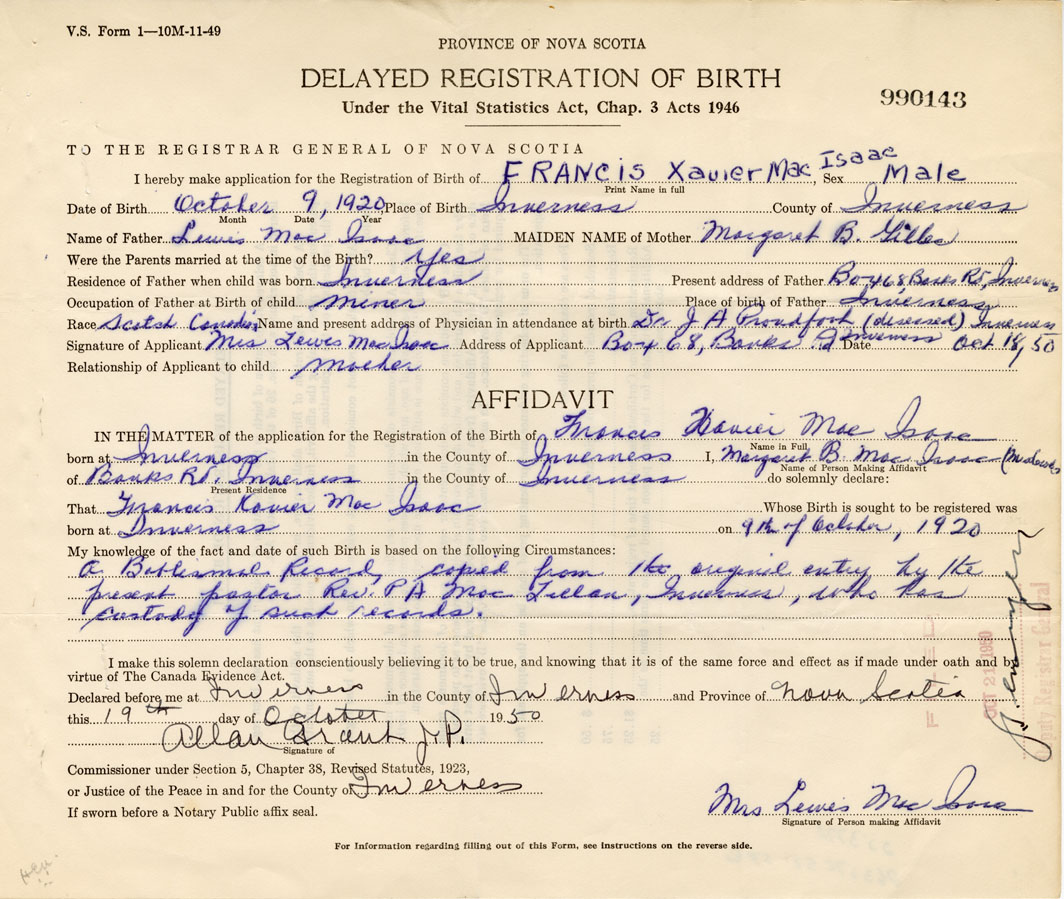 V.S. Form 1—10M-11-49
PROVINCE OF NOVA SCOTIA
DELAYED REGISTRATION OF BIRTH
990143
Under the Vital Statistics Act, Chap. 3 Acts 1946
TO THE REGISTRAR GENERAL OF NOVA SCOTIA
I hereby make application for the Registration of Birth of FRANCIS Xavier Mac Isaac, Sex Male
Print Name in full
Date of Birth October 9, 1920 Place of Birth Inverness County of Inverness
Month Date Year
Name of Father Lewis Mac Isaac MAIDEN NAME of Mother Margaret B. Gillis
Were the Parents married at the time of the Birth? Yes
Residence of Father when child was born Inverness Present address of Father Box 68 Banks Rd, Inverness
Occupation of Father at Birth of child Miner Place of birth of Father Inverness
Race Scotch Canadian Name and present address of Physician in attendance at birth Dr J A Proudfoot (deseased) Inverness
Signature of Applicant Mrs Lewis Mac Isaac Address of Applicant Box 68, Banks Rd Inverness Date Oct 18, 50
Relationship of Applicant to child mother
AFFIDAVIT
IN THE MATTER of the application for the Registration of the Birth of Francis Xavier Mac Isaac
Name in Full
born at Inverness in the County of Inverness I, Margaret B. Mac Isaac (Mrs Lewis
Name of Person Making Affidavit
of Banks Rd. Inverness in the County of Inverness do solemnly declare:
Present Residence
That Francis Xavier Mac Isaac Whose Birth is sought to be registered was
born at Inverness on 9th of October, 1920
My knowledge of the fact and date of such Birth is based on the following Circumstances:
A Babtismal Record, copied from the original entry by the
present pastor Rev. P A Mac Lellan, Inverness, who has
custody of such records.
I make this solemn declaration conscientiously believing it to be true, and knowing that it is of the same force and effect as if made under oath and by
virtue of The Canada Evidence Act.
Declared before me at Inverness in the County of Inverness and Province of Nova Scotia
this 19th day of October 1950
Allan Grant J.P.
Signature of
Commissioner under Section 5, Chapter 38, Revised Statutes, 1923,
or Justice of the Peace in and for the County of Inverness
If sworn before a Notary Public affix seal.
Mrs Lewis Mac Isaac
Signature of Person making Affidavit
For Information regarding filling out of this Form, see instructions on the reverse side.
FILED
OCT 21 1950
Deputy Registrar General